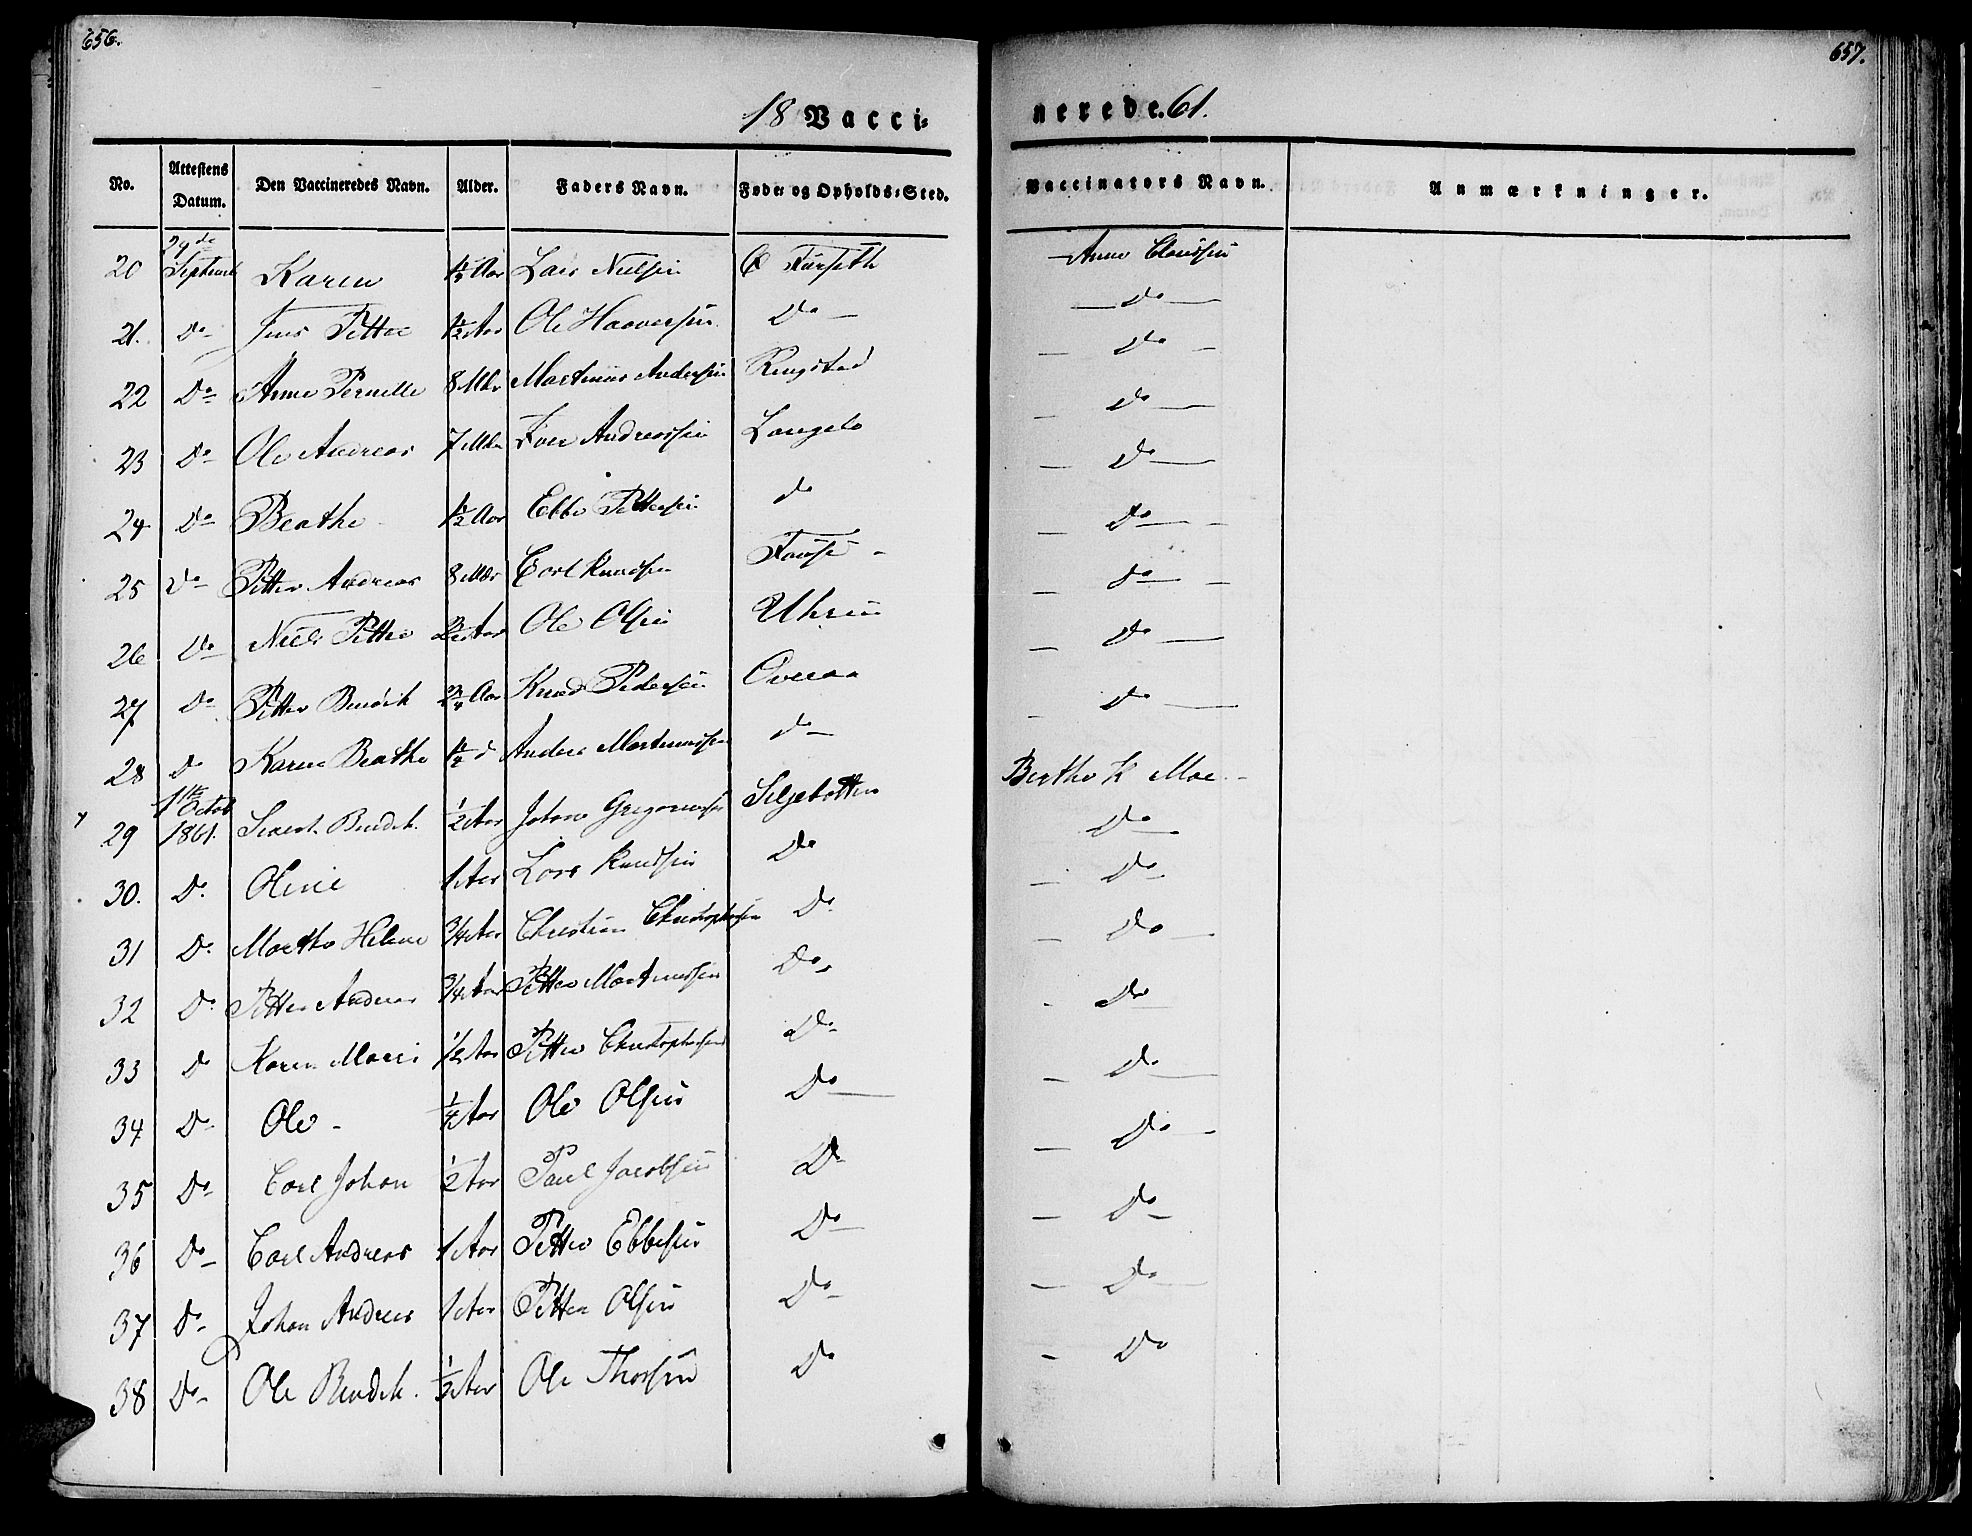 656.
657.
18 Vacci-
nerede. 61.
No. Attestens Datum. Den Vaccineredes Navn. Alder. Faders Navn. Føde- og Opholds-Sted. Vaccinators Navn. Anmærkninger.
20 29de Septemb Karen Aar Lars Nielsen Anne Claussen
21. Do Jens Petter 1/2 Aar Ole Haaversen Do — Do —
22 Do Anne Pernelle 8 Mdr Martinus Andersen Ringstad — Do —
23 Do Ole Andreas 7 Mdr Iver Andreassen Langelo — Do —
24 Do Beathe 1/2 Aar Ebbe Pettersen do — Do —
25 Do Petter Andreas 8 Mdr Carl Knudsen Do —
26 Do Niels Petter Aar Ole Olsen — Do —
27 Do Petter Aar Knud Pedersen Overaa — Do —
28 Do Karen Beathe 1/2 d Anders Martinussen do — Do —
29 1ste Octob 1861. 1/2 Aar Johan Gregoriussen Seljebotten Berthe K Moe. —
30. Do. Oline 1 Aar Lars Knudsen Do Do
31 Do. Marthe Helene 3/4 Aar Christian Christophersen Do. — Do
32 Do. Petter Andreas 3/4 Aar Petter Martinussen Do — Do —
33 Do Karen 1/2 Aar Petter Christophersen Do — Do
34 Do Ole — 1/4 Aar Ole Olsen Do — Do —
35 Do Carl Johan 1/2 Aar Paul Jacobsen Do — Do —
36 Do Carl Andreas 1 Aar Petter Ebbesen Do — Do —
37 Do Johan Andreas 1 Aar Petter Olsen Do — Do —
38 Do Ole Aar Ole Do — Do